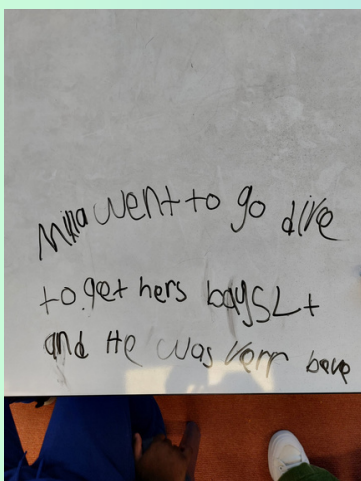 Milla went to go dive
to get hers baysLt
and He was Verr bave